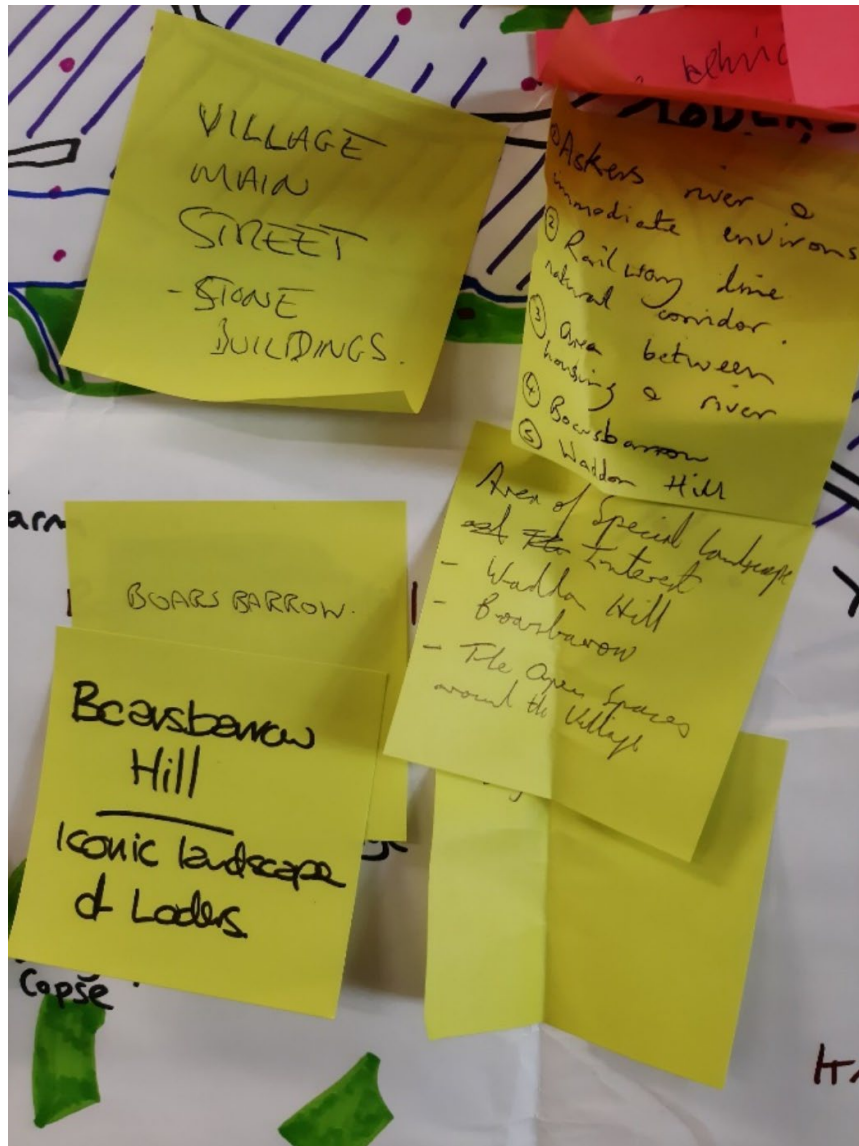 VILLAGE
MAIN
STREET
- STONE
BUILDINGS.
behind
LODERS
① Askers river &
immediate environs
② Railway line
natural corridor.
③ Area between
housing & river
④ Boarsbarrow
⑤ Waddon Hill
Area of Special Landscape
Interest
- Waddon Hill
- Boarsbarrow
- The Open Spaces
around the Village
BOARSBARROW.
Boarsbarrow
Hill
Iconic landscape
of Loders.
Copse